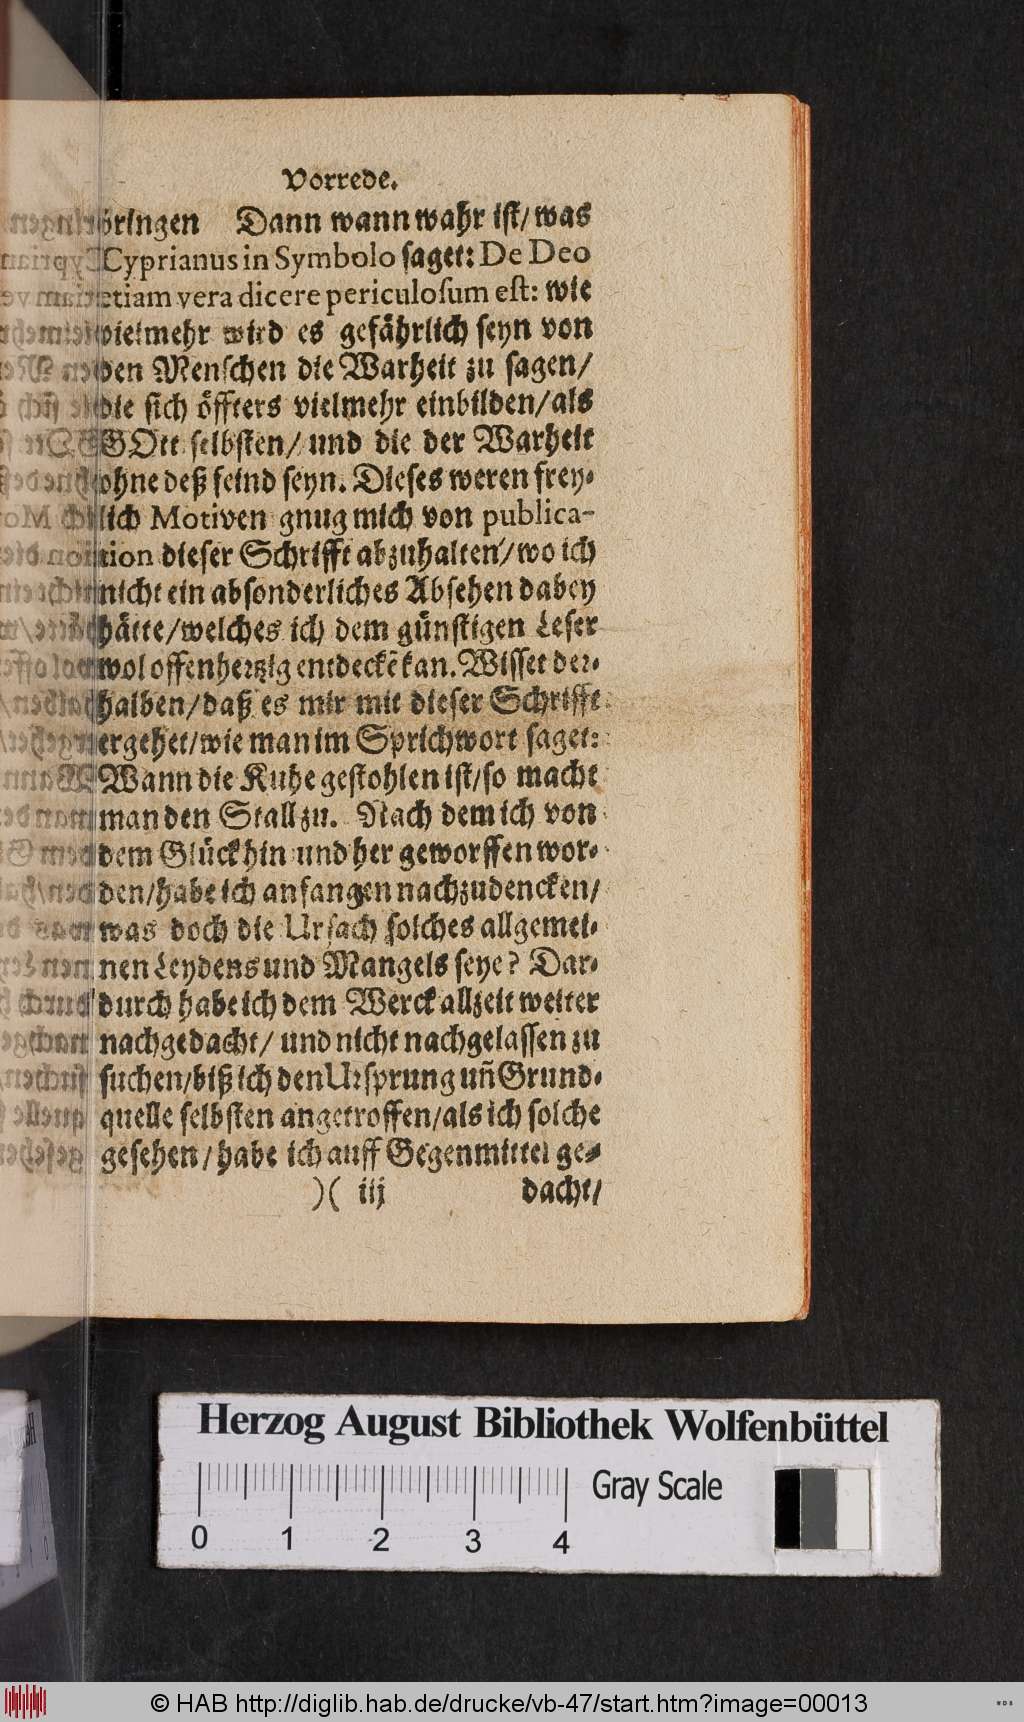 Vorrede.
bringen Dann wann wahr ist/ was
Cyprianus in Symbolo saget: De Deo
etiam vera dicere periculosum est: wie
vielmehr wird es gefährlich seyn von
den Menschen die Warheit zu sagen/
die sich öffters vielmehr einbilden/ als
GOtt selbsten/ und die der Warheit
ohne deß feind seyn. Dieses weren frey-
lich Motiven gnug mich von publica-
tion dieser Schrifft abzuhalten/ wo ich
nicht ein absonderliches Absehen dabey
hätte/ welches ich dem günstigen Leser
wol offenhertzig entdeckē kan. Wisset der-
halben/ daß es mir mit dieser Schrifft
ergehet/ wie man im Sprichwort saget:
Wann die Kuhe gestohlen ist/ so macht
man den Stall zu. Nach dem ich von
dem Glück hin und her geworffen wor-
den/ habe ich anfangen nachzudencken/
was doch die Ursach solches allgemei-
nen Leydens und Mangels seye? Dar-
durch habe ich dem Werck allzeit weiter
nachgedacht/ und nicht nachgelassen zu
suchen/ biß ich den Ursprung uñ Grund-
quelle selbsten angetroffen/ als ich solche
gesehen/ habe ich auff Gegenmittel ge-
)( iij dacht/
Herzog August Bibliothek Wolfenbüttel
Gray Scale
0 1 2 3 4
© HAB http://diglib.hab.de/drucke/vb-47/start.htm?image=00013